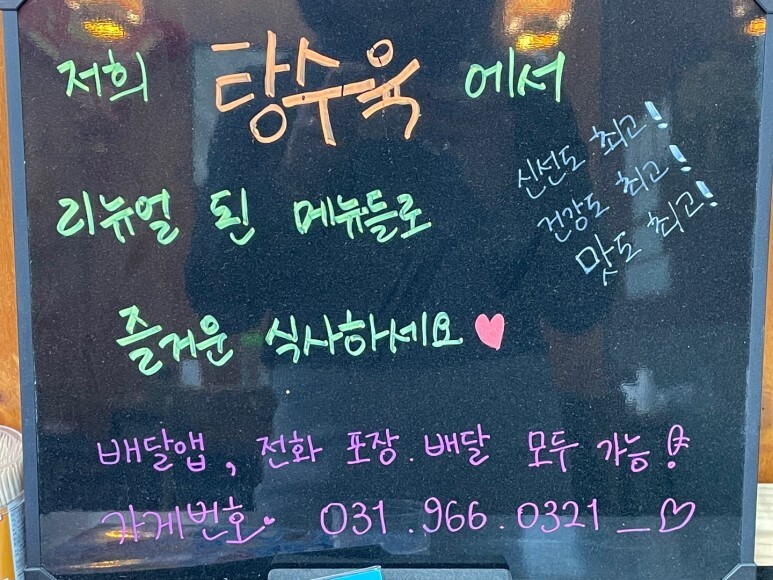 저희 탕수육 에서
신선도 최고!
건강도 최고!
맛도 최고!
리뉴얼 된 메뉴들로
즐거운 식사하세요♥
배달앱, 전화 포장. 배달 모두 가능!
가게번호 031.966.0321_♡